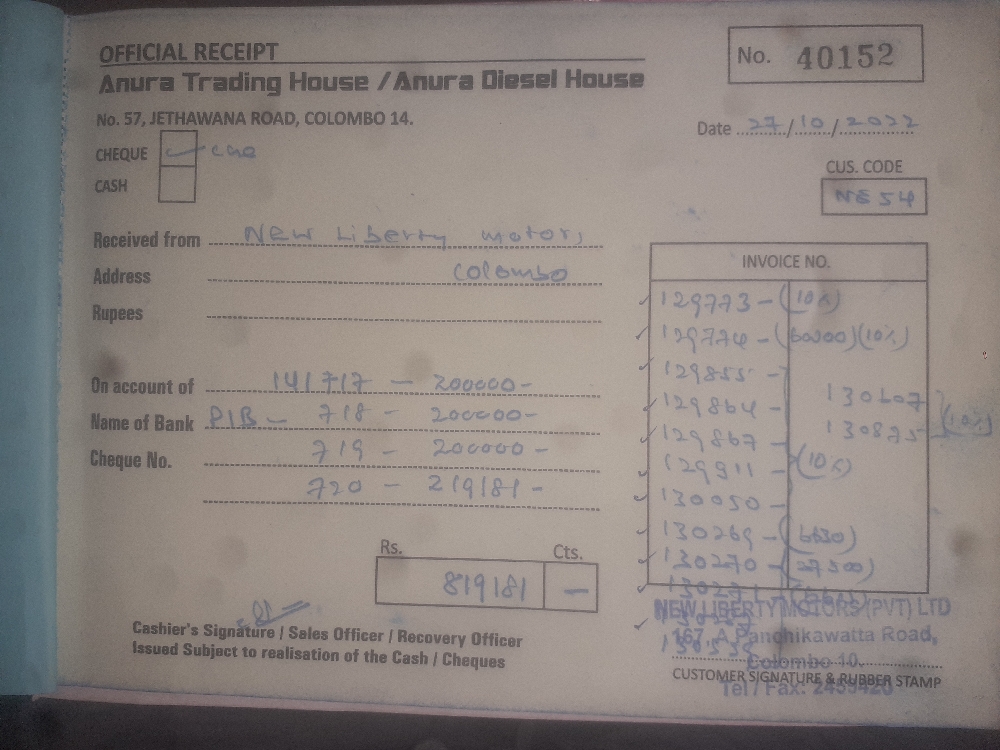 OFFICIAL RECEIPT
No. 40152
Anura Trading House / Anura Diesel House
No. 57, JETHAWANA ROAD, COLOMBO 14.
Date 27/10/2022
CHEQUE
CASH
CUS. CODE
NE 54
Received from New Liberty Motors
Address Colombo
Rupees
On account of 141717 - 200000-
Name of Bank 718 - 200000-
Cheque No. 719 - 200000-
720 - 219181-
Rs. Cts.
819181 -
INVOICE NO.
129773 - (10%)
129774 - (60200)(10%)
129855 -
129864 -
129867 -
129911 - (10%)
130050 -
130269 - (6630)
130270 - (27500)
130607
130875 (10%)
Cashier's Signature / Sales Officer / Recovery Officer
Issued Subject to realisation of the Cash / Cheques
NEW LIBERTY MOTORS (PVT) LTD
167, A Panchikawatta Road,
Colombo 10.
CUSTOMER SIGNATURE & RUBBER STAMP
Tel / Fax: 2459420